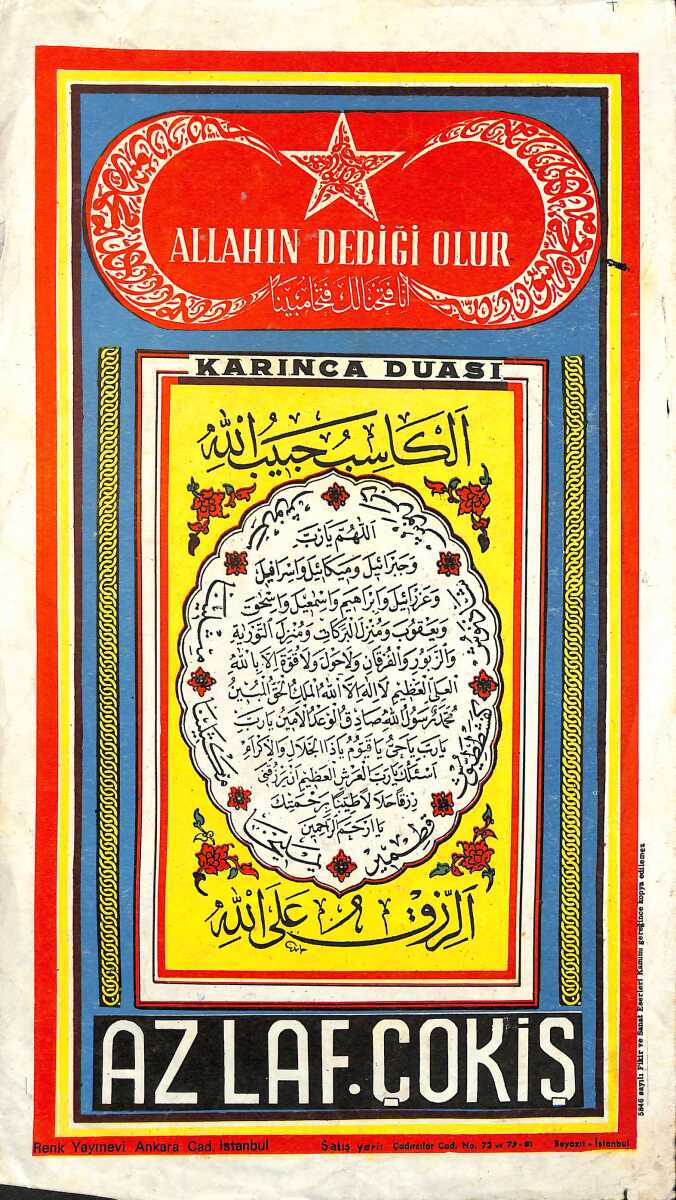 ALLAHIN DEDİĞİ OLUR
انا فتحنا لك فتحا مبينا
KARINCA DUASI
الكاسب حبيب الله
اللهم يا رب
وجبرائيل وميكائيل واسرافيل
وعزرائيل وابراهيم واسمعيل واسحق
ويعقوب ومنزل البركات ومنزل التورية
والزبور والفرقان ولا حول ولا قوة الا بالله
العلى العظيم لا اله الا الله الملك الحق المبين
محمد رسول الله صادق الوعد الامين يا رب
يا رب يا حى يا قيوم يا ذا الجلال والاكرام
اسئلك يا رب العرش العظيم ان ترزقنى
رزقا حلالا طيبا برحمتك
يا ارحم الراحمين
يمليخا
مكثلينا
مرنوش
كفشططيوش
قطمير
الرزق على الله
حامد
AZ LAF. ÇOK İŞ
Renk Yayınevi Ankara Cad. İstanbul
Satış yeri: Çadırcılar Cad. No. 73 ve 79-81 Beyazıt - İstanbul
5846 sayılı Fikir ve Sanat Eserleri Kanunu gereğince kopya edilemez